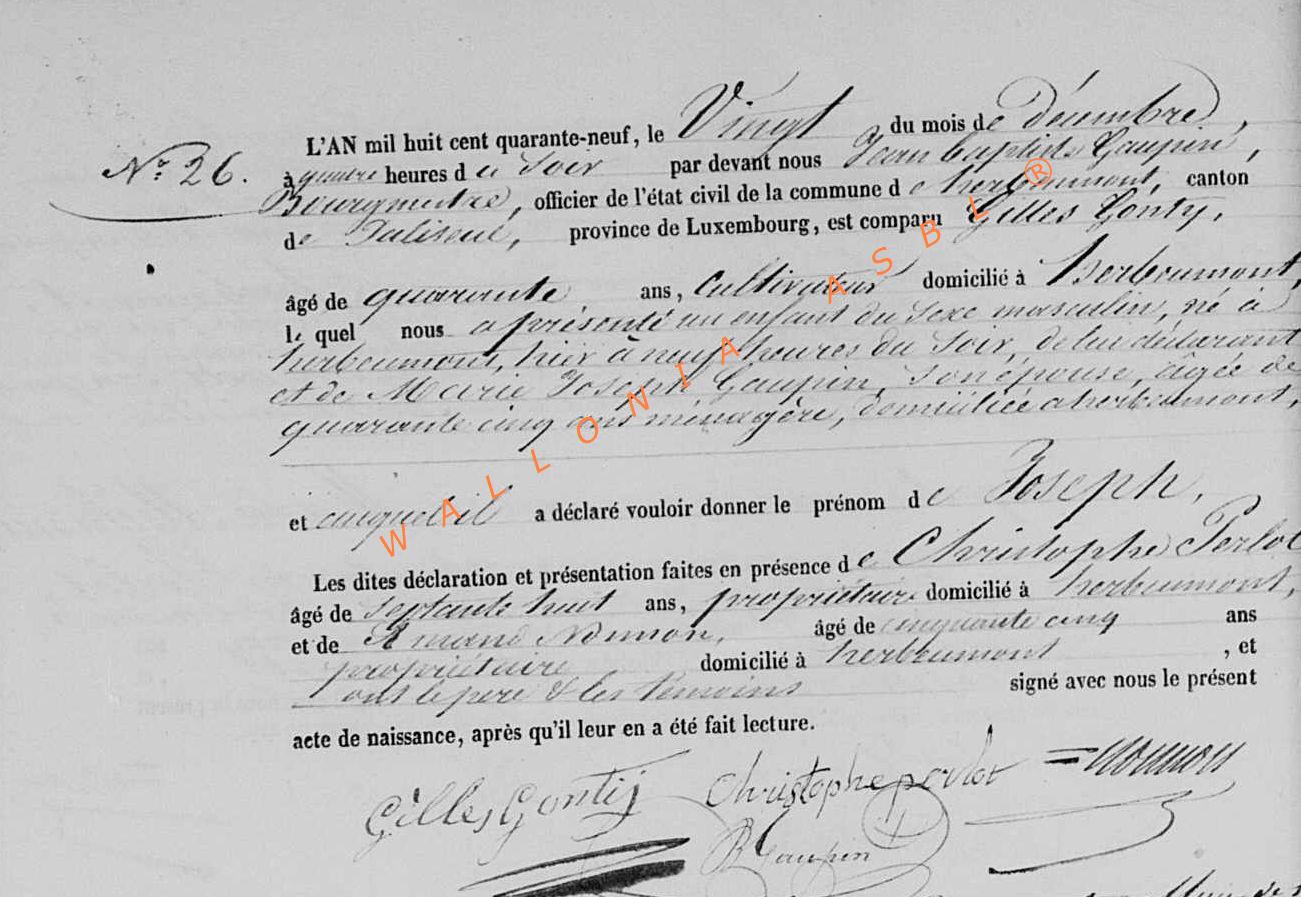 N.r 26.
L'AN mil huit cent quarante-neuf, le Vingt du mois de décembre,
à quatre heures du Soir par devant nous Jean baptiste Gaupin,
Bourgmestre, officier de l'état civil de la commune d'herbeumont, canton
de Paliseul, province de Luxembourg, est comparu Gilles Gonty,
âgé de quarante ans, Cultivateur domicilié à herbeumont,
le quel nous a présenté un enfant du Sexe masculin, né à
herbeumont, hier à neuf heures du Soir, de lui déclarant
et de Marie Joseph Gaupin, son épouse, âgée de
quarante cinq ans ménagère, domiciliée a herbeumont,
et auquel il a déclaré vouloir donner le prénom de Joseph,
Les dites déclaration et présentation faites en présence de Christophe Perlot
âgé de septante huit ans, propriétaire domicilié à herbeumont,
et de Amand Noumon, âgé de cinquante cinq ans
propriétaire domicilié à herbeumont, et
ont le pere & les temoins signé avec nous le présent
acte de naissance, après qu'il leur en a été fait lecture.
Gilles Gontij Christophe perlot Noumon
JBGaupin
WALLONIA ASBL ®